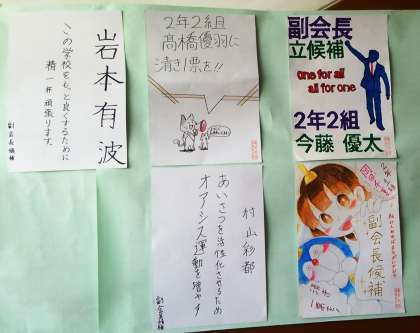 岩本有波
この学校をもっと良くするために
精一杯 頑張ります。
副会長候補
2年2組
高橋優羽に
清き1票を!!
副会長
立候補
one for all
all for one
2年2組
今藤 優太
村山彩都
あいさつを活性化させるため
オアシス運動を増やす
副会長候補
副会長候補